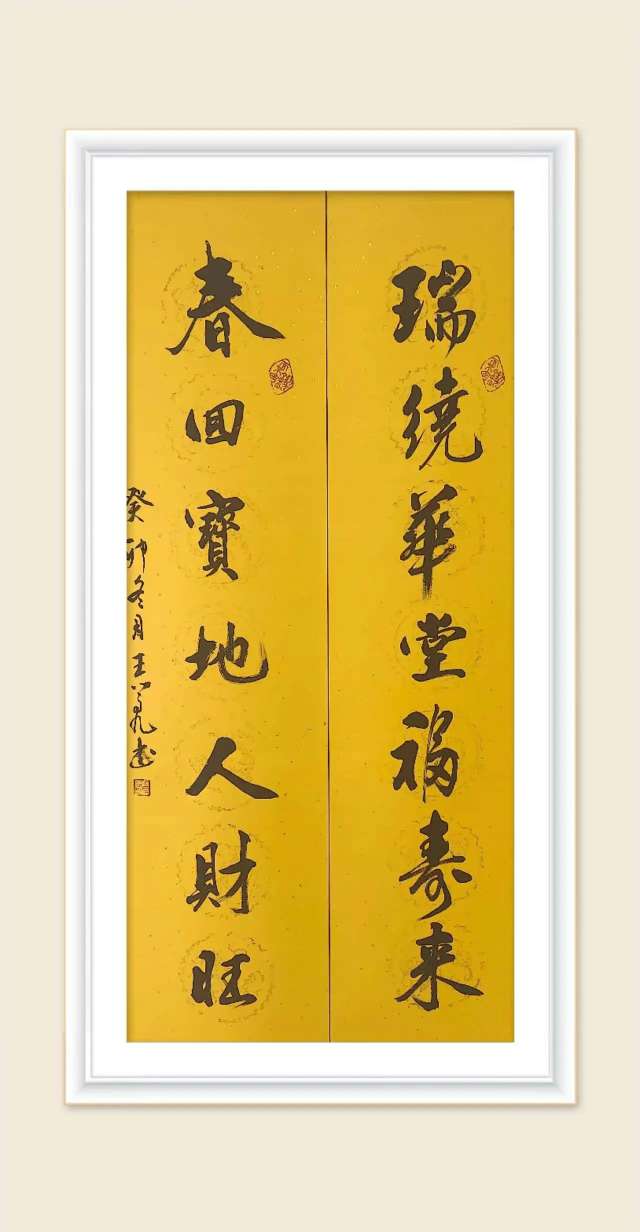 瑞绕華堂福寿来
春回寳地人财旺
癸卯冬月王